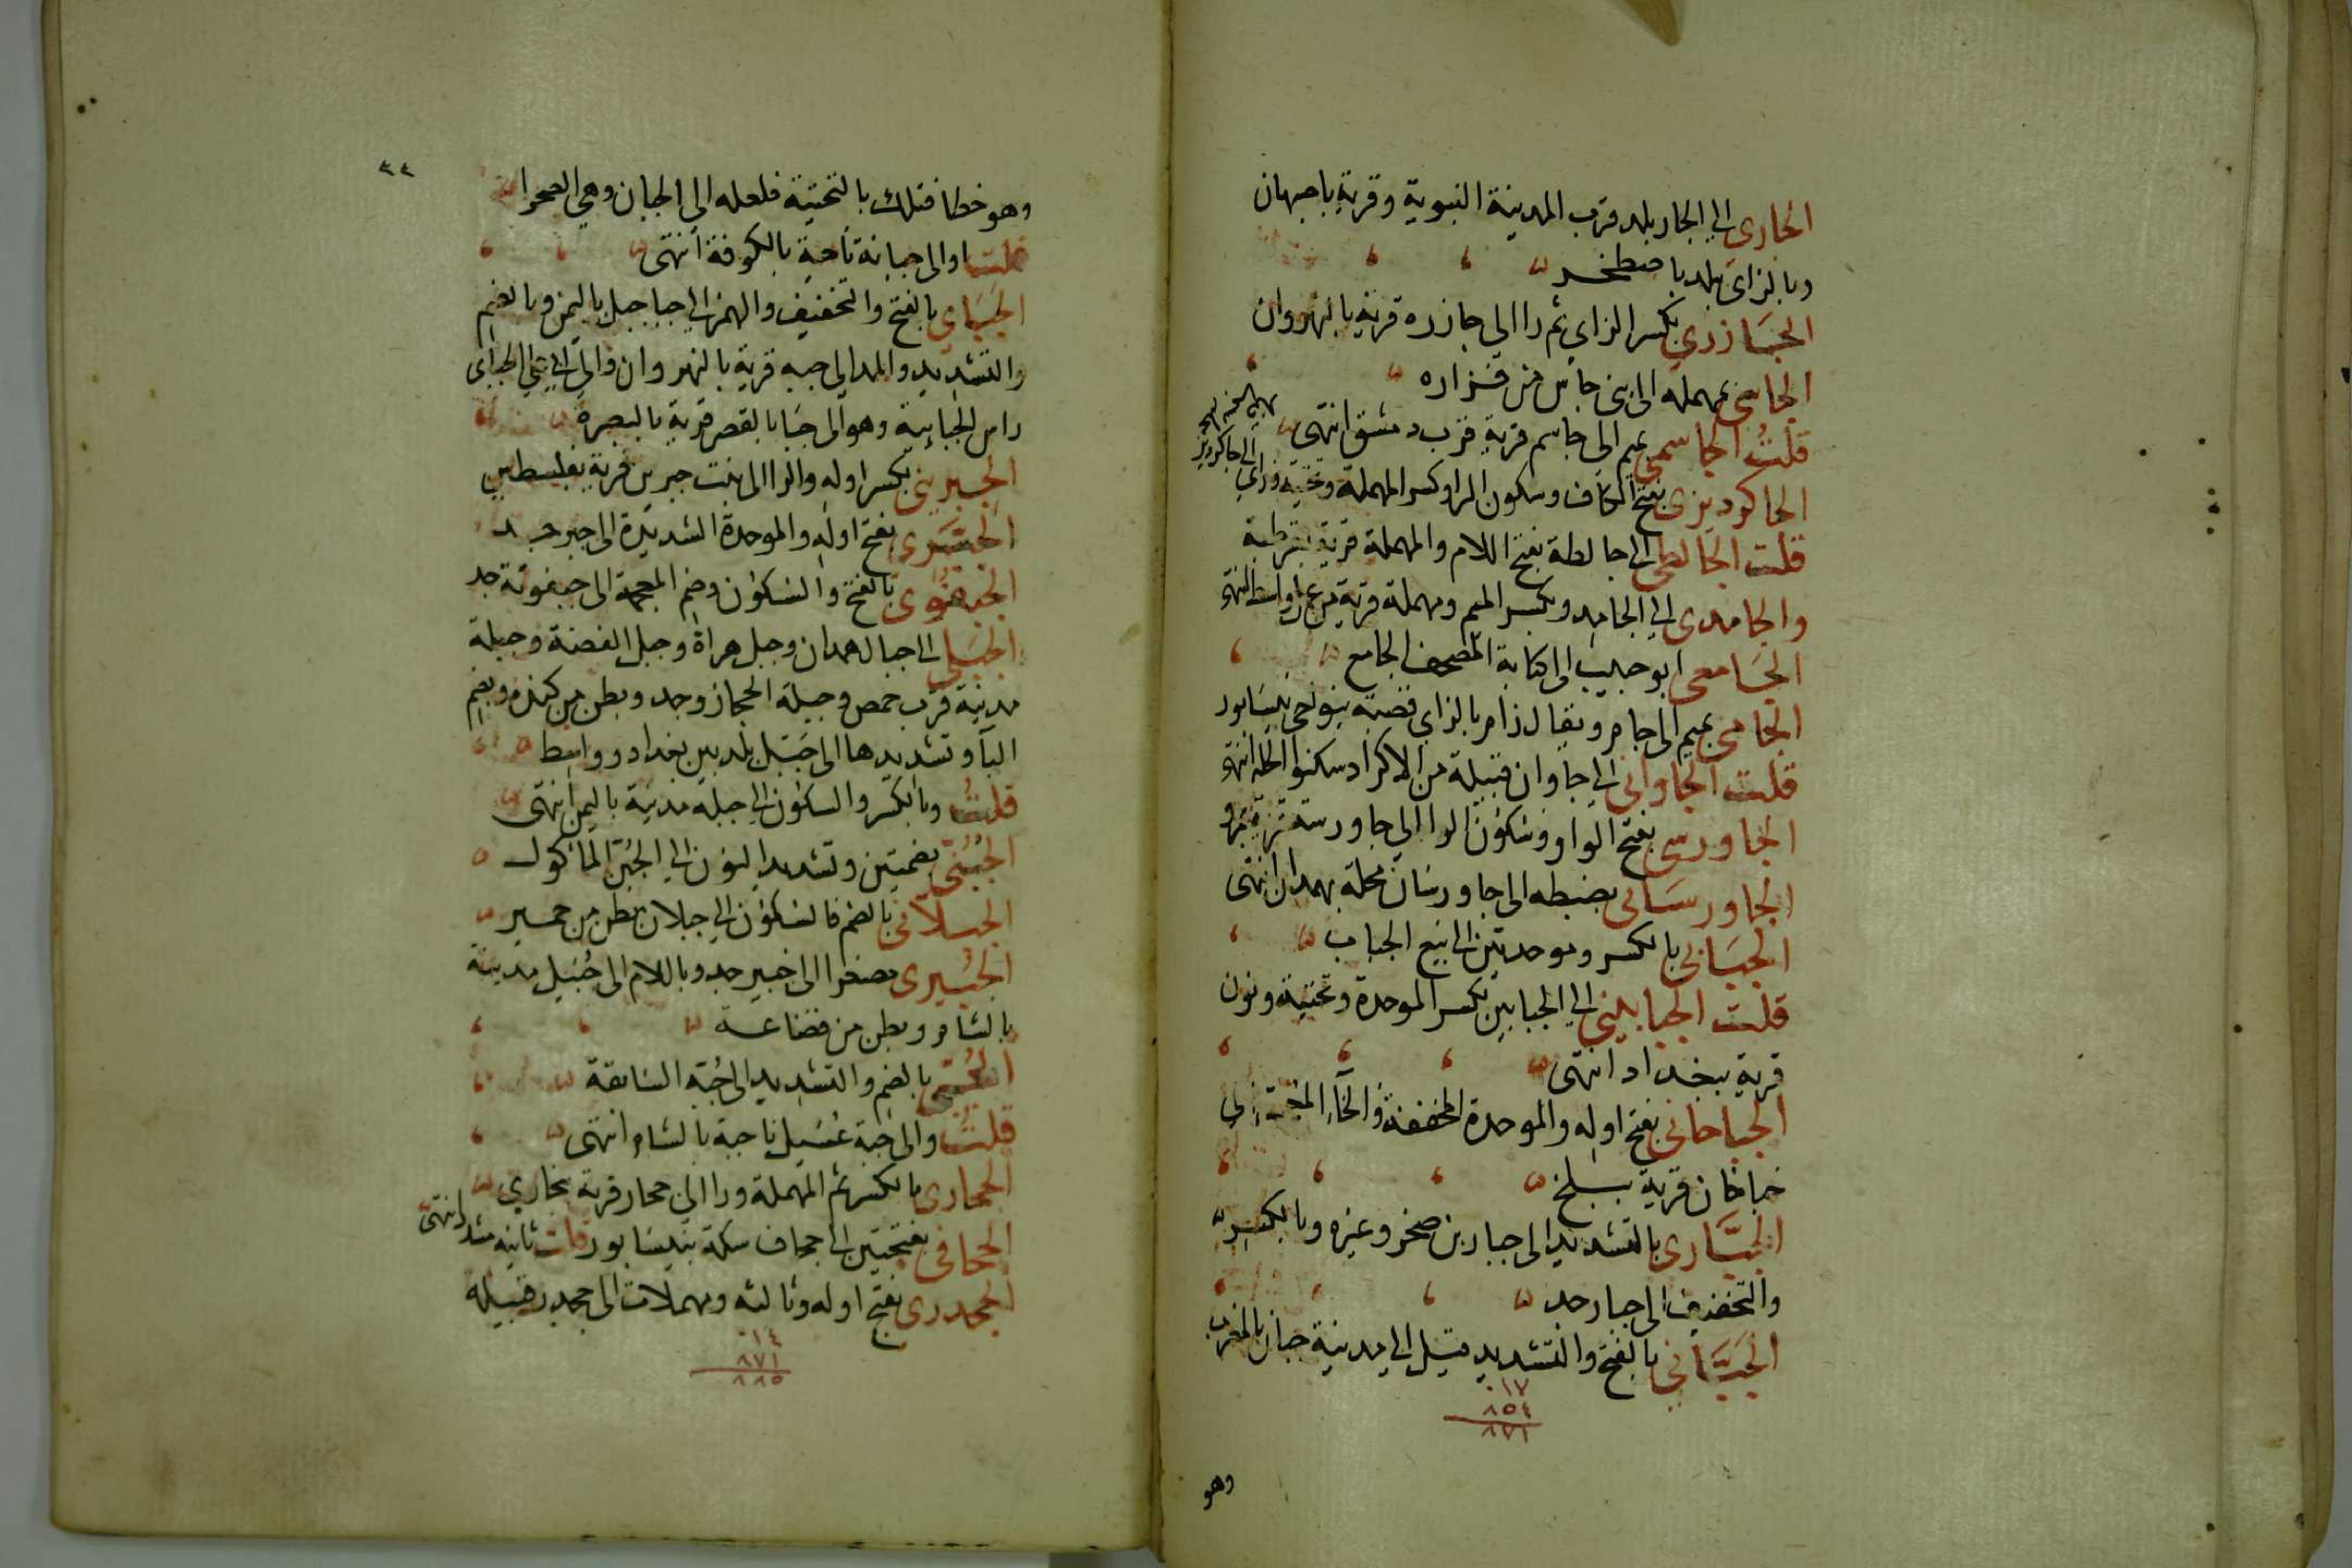 الجارى الى الجار بلد قرب المدينة النبوية وقرية باصبهان
وبالزاى بلد باصطخر
الجَازرى بكسر الزاى ثم را الى جازره قرية بالنهروان
الجاسى بمهملة الى بنى جاس من فزاره
قلتُ الجاسمى بميم الى جاسم قرية قرب دمشق انتهى
الجاكرديزى بفتح الكاف وسكون الرا وكسر المهملة وتحتية وزاى الى جاكرديز
قلت الجالطى الى جالطة بفتح اللام والمهملة قرية بقرطبة
والجامدى الى الجامد وبكسر الميم ومهملة قرية من عمل واسط انتهى
الجَامعى ابو حبيب الى كتابة المصحف الجامع
الجامى بميم الى جام ويقال زام بالزاى قصبة بنواحى نيسابور
قلت الجاوانى الى جاوان قبيلة من الاكراد سكنوا الحلة انتهى
الجاورسى بفتح الواو وسكون الرا الى جاورسة قرية بمرو
الجاورسَانى بضبطه الى جاورسان محلة بهمدان انتهى
الجبَابى بالكسر وموحدتين الى بيع الجباب
قلت الجبابينى الى الجبابين بكسر الموحدة وتحتية ونون
قرية ببغداد انتهى
الجباخانى بفتح اوله والموحدة المخففة والخاء المعجمة الى
خباخان قرية ببلخ
الجبَّارى بالتشديد الى جبار بن صخر وغيره وبالكسر
والتخفيف الى جبار جد
الجَبَّانى بالفتح والتشديد قيل الى مدينة جبان بالمغرب
٠١٧
٨٥٤
٨٧١
وهو
٤٤
وهو خطا فتلك بالتحتية فلعله الى الجبان وهى الصحرا
قلت او الى جبانة ناحية بالكوفة انتهى
الجَبَاى بالفتح والتخفيف والهمز الى جبا جبل باليمن وبالضم
والتشديد والمد الى جبه قرية بالنهروان والى ابى على الجباى
راس الجبايية وهو الى جبا بالقصر قرية بالبصرة
الجبرينى بكسر اوله والرا الى بيت جبرين قرية بفلسطين
الجَبَّرى بفتح اوله والموحدة الشديدة الى جبر جد
الجبغوى بالفتح والسكون وضم المعجمة الى جبغويه جد
الجبَلى الى جبال همدان وجبل هراة وجبل الفضة وجبلة
مدينة قرب حمص وجبلة الحجاز وجد وبطن من كندة وبضم
البآ وتشديدها الى جَبُّل بلد بين بغداد وواسط
قلتُ وبالكسر والسكون الى جبلة مدينة باليمن انتهى
الجُبُنّى بضمتين وتشديد النون الى الجُبُنّ الماكول
الجبلانى بالضم فالسكون الى جبلان بطن من حمير
الجُبَيرى مصغرا الى جبير جد وباللام الى جُبَيل مدينة
بالشام وبطن من قضاعة
الجُبّى بالضم والتشديد الى جُبّة السابقة
قلتُ والى جبة عُسَيل ناحية بالشام انتهى
الجحارى بالكسر ثم المهملة ورا الى جحار قرية بخارى
الجحافى بفتحتين الى جحاف سكة بنيسابور قلت ثانيه مشدد انتهى
الجحدرى بفتح اوله وثالثه ومهملات الى جحدر قبيلة
٠١٤
٨٧١
٨٨٥